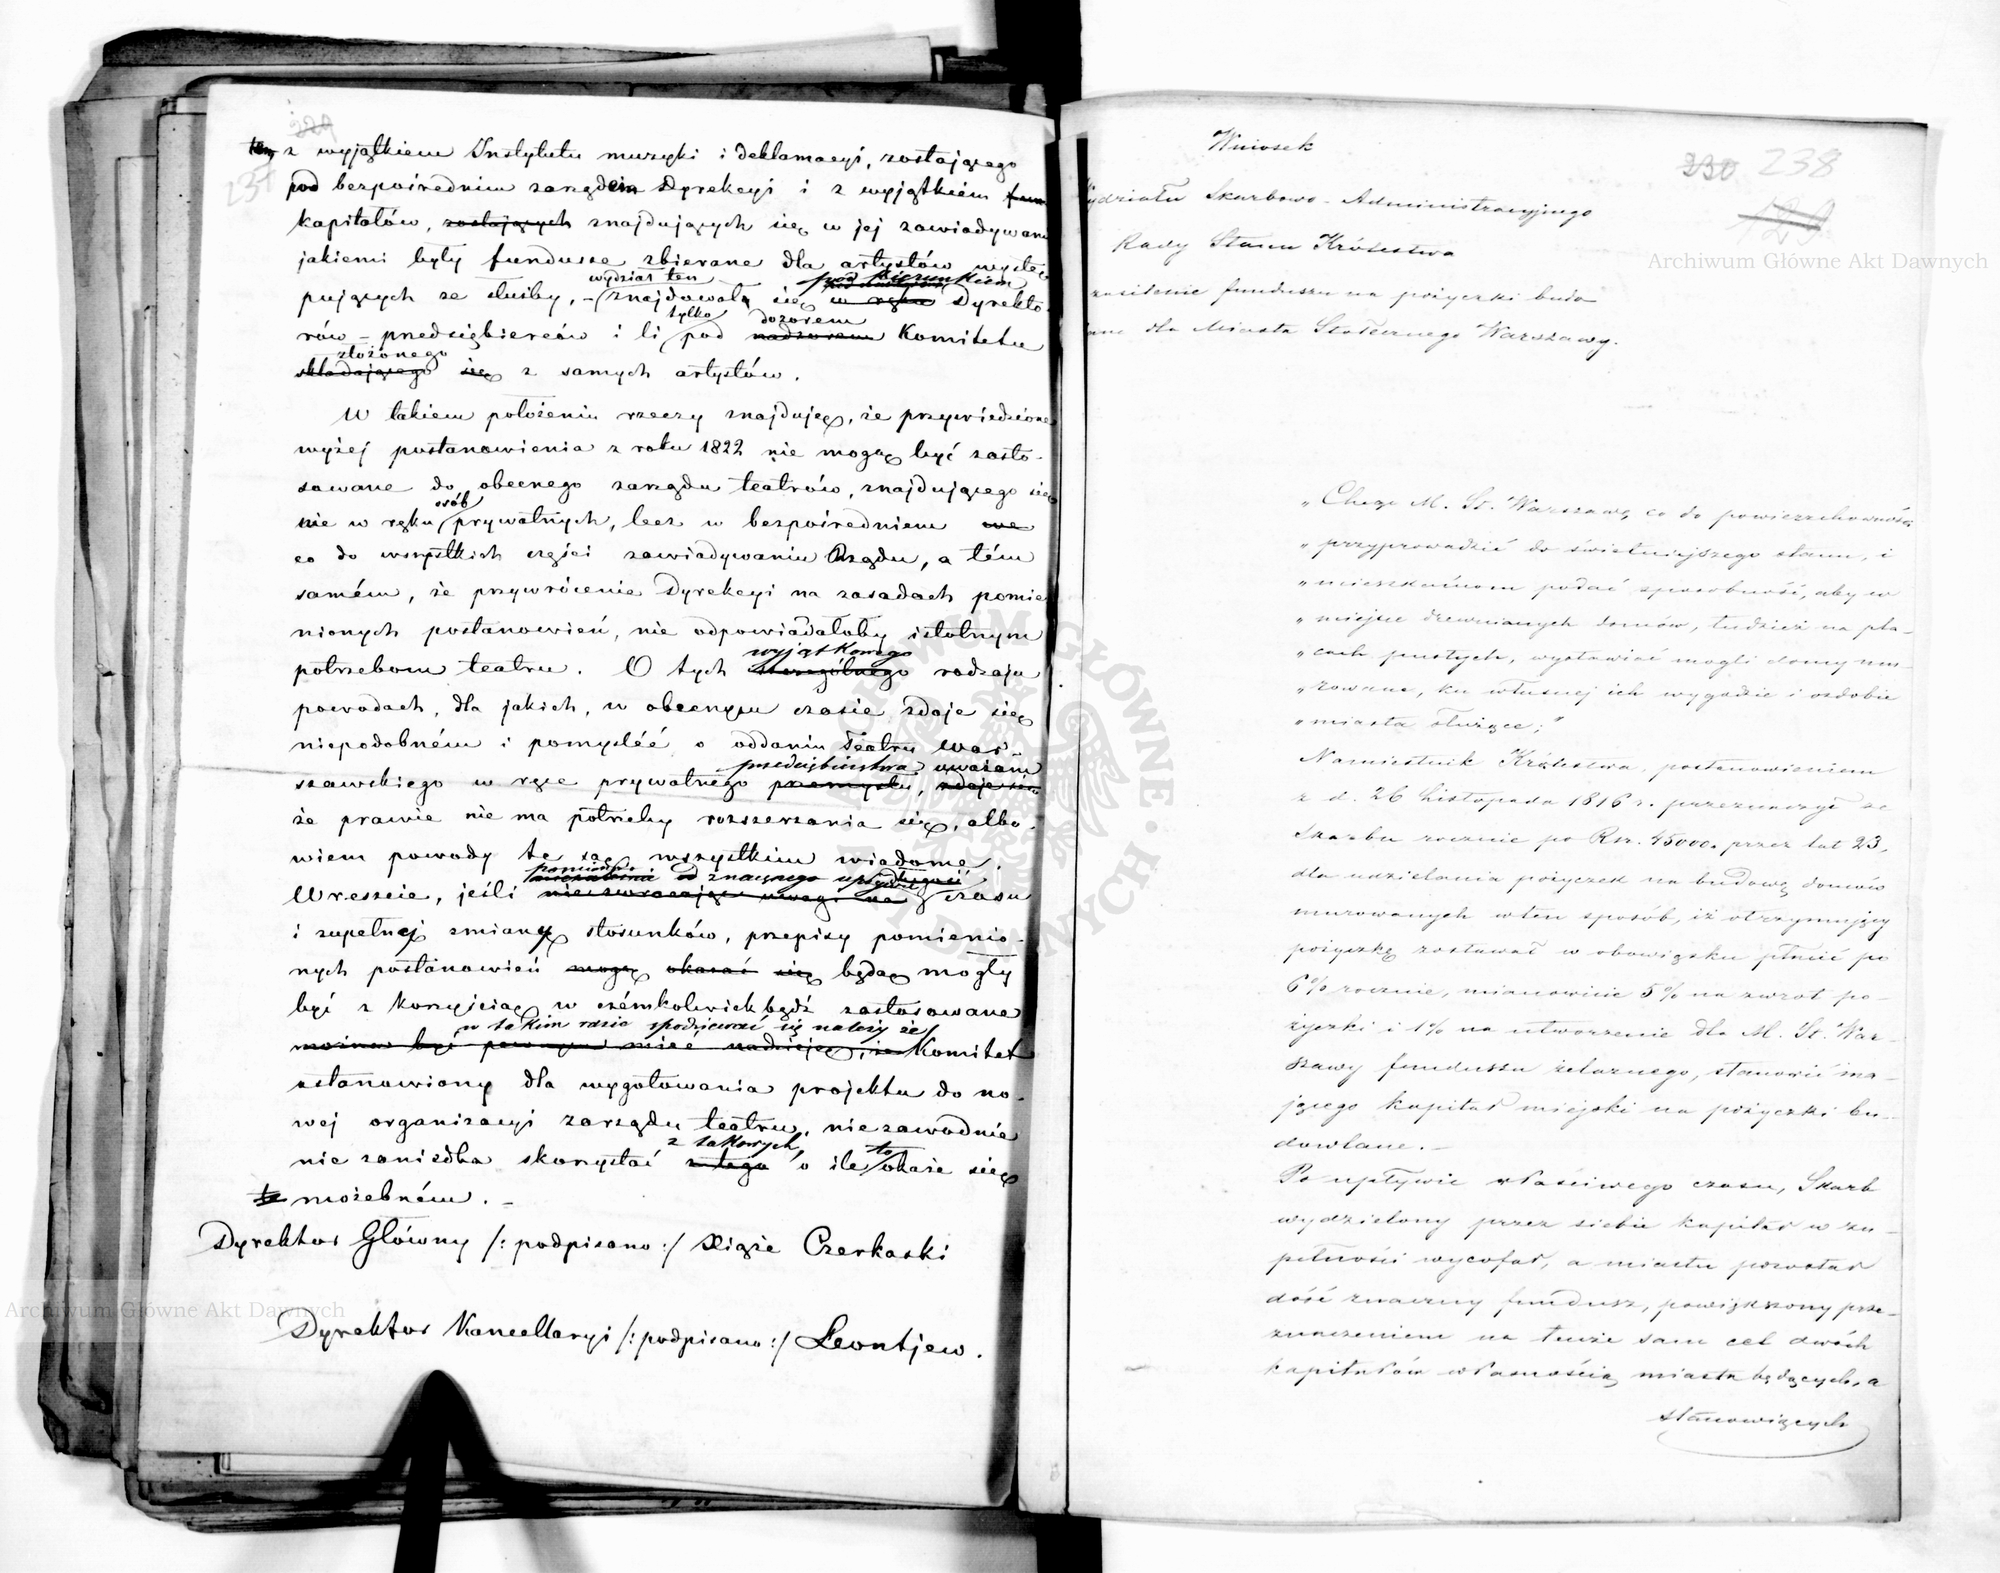 229
237
ten z wyjątkiem Instytutu muzyki i deklamacyi, zostającego
pod bezpośrednim zarządem Dyrekcyi i z wyjątkiem fun
kapitałów, zostających znajdujących się w jej zawiadywaniu
jakiemi były fundusze zbierane dla artystów wystę
wydział ten pod kierunkiem
pujących ze służby, – znajdował się w ręku Dyrekto-
tylko dozorem
rów – przedsiębierców i li pod nadzorem Komitetu
złożonego
składającego się z samych artystów.
W takiem położeniu rzeczy znajduję, że przywiedzione
wyżej postanowienia z roku 1822 nie mogą być zasto-
sowane do obecnego zarządu teatrów, znajdującego się
osób
nie w ręku prywatnych, lecz w bezpośredniem we
co do wszystkich części zawiadywaniu Rządu, a tém
samém, że przywrócenie Dyrekcyi na zasadach pomie
nionych postanowień, nie odpowiadałoby istotnym
wyjątkowego
potrzebom teatru. O tych szczególnego rodzaju
powodach, dla jakich, w obecnym czasie zdaje się
niepodobném i pomyśléć o oddaniu Teatru War-
przedsiębierstwa, uważam
szawskiego w ręce prywatnego przemysłu, zdaje się
że prawie nie ma potrzeby rozszerzania się, albo-
wiem powody te są wszystkim wiadome.
pomimo od znacznego upływu
Wreszcie, jeśli nie zwracając uwagi na czasu
i zupełnej zmiany stosunków, przepisy pomienio-
nych postanowień mogą okazać się będą mogły
być z korzyścią w czémkolwiekbądź zastosowane
w takim razie spodziewać się należy że
można być pewnym mieć nadzieję, że Komitet
ustanowiony dla wygotowania projektu do no-
wej organizacyi zarządu teatru, niezawodnie
z takowych, to
nie zaniedba skorzystać z tego o ile okaże się
to możebném. –
Dyrektor Główny /: podpisano :/ Xiąże Czerkaski
Dyrektor Kancellaryi /: podpisano :/ Leontjew.
Wniosek
230 238
129
Wydziału Skarbowo-Administracyjnego
Rady Stanu Królestwa
zasilenie funduszu na pożyczki budo
dla Miasta Stołecznego Warszawy.
„Chcąc M. St. Warszawę, co do powierzchowności
„przyprowadzić do świetniejszego stanu, i
„mieszkańcom podać sposobność, aby w
„miejsce drewnianych domów, tudzież na pla-
„cach pustych, wystawiać mogli domy mu-
„rowane, ku własnej ich wygodzie i ozdobie
„miasta służące;"
Namiestnik Królestwa, postanowieniem
z d. 26 Listopada 1816 r. przeznaczył ze
Skarbu rocznie po Rsr. 45000. przez lat 23,
dla udzielania pożyczek na budowę domów
murowanych w ten sposób, iż otrzymujący
pożyczkę zostawał w obowiązku płacić po
6% rocznie, mianowicie 5% na zwrot po-
życzki i 1% na utworzenie dla M. St. War-
szawy funduszu żelaznego, stanowić ma-
jącego kapitał miejski na pożyczki bu-
dowlane. –
Po upływie właściwego czasu, Skarb
wydzielony przez siebie kapitał w zu-
pełności wycofał, a miastu pozostał
dość znaczny fundusz, powiększony prze-
znaczeniem na tenże sam cel dwóch
kapitałów własnością miasta będących, a
stanowiących
Archiwum Główne Akt Dawnych
Archiwum Główne Akt Dawnych
ARCHIWUM GŁÓWNE AKT DAWNYCH